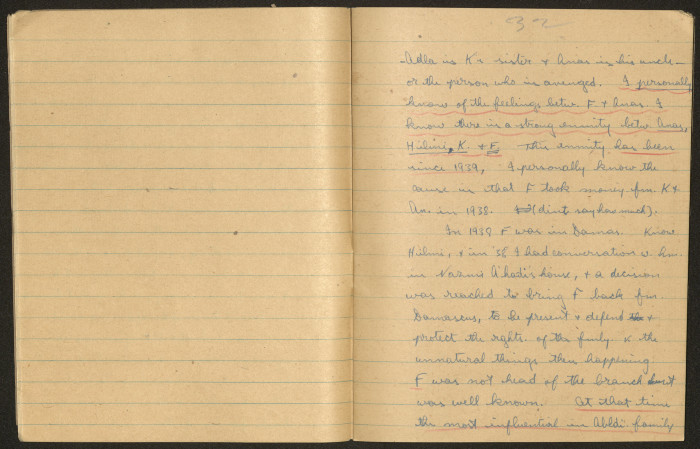 32
Adla is K's sister & Anas is his uncle
or the person who is avenged. I personally
know of the feelings betw. F & Anas. I
know there is a strong enmity betw Anas,
Hilmi, K. & F. This enmity has been
since 1939, I personally know the
cause is that F took money fm. K &
in 1938. (dint say how much).
In 1938 F was in Damas. Know
Hilmi, & in '38 I had conversation w. hm.
in house, & a decision
was reached to bring F back fm
Damascus, to be present & defend &
protect the rights of the fmly & the
unnatural things then happening
F was not head of the branch but
was well known. At that time
the most influential in family